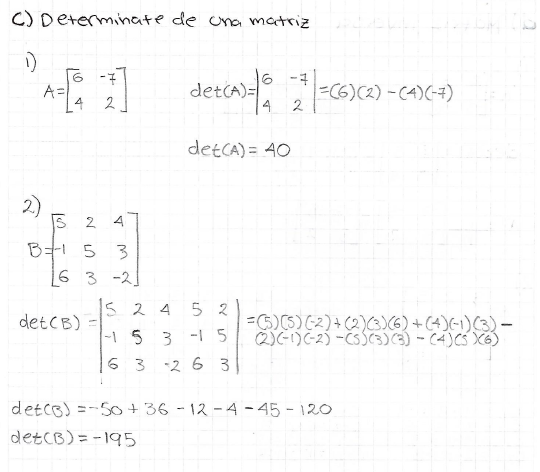 C) Determinate de una matriz
1)
A=[6 -7
4 2]
det(A)=|6 -7
4 2|=(6)(2)-(4)(-7)
det(A)= 40
2)
B=[5 2 4
-1 5 3
6 3 -2]
det(B) =|5 2 4 5 2
-1 5 3 -1 5
6 3 -2 6 3|
=(5)(5)(-2)+(2)(3)(6)+(4)(-1)(3)-
(2)(-1)(-2)-(5)(3)(3)-(4)(5)(6)
det(B) =-50+36-12-4-45-120
det(B)=-195